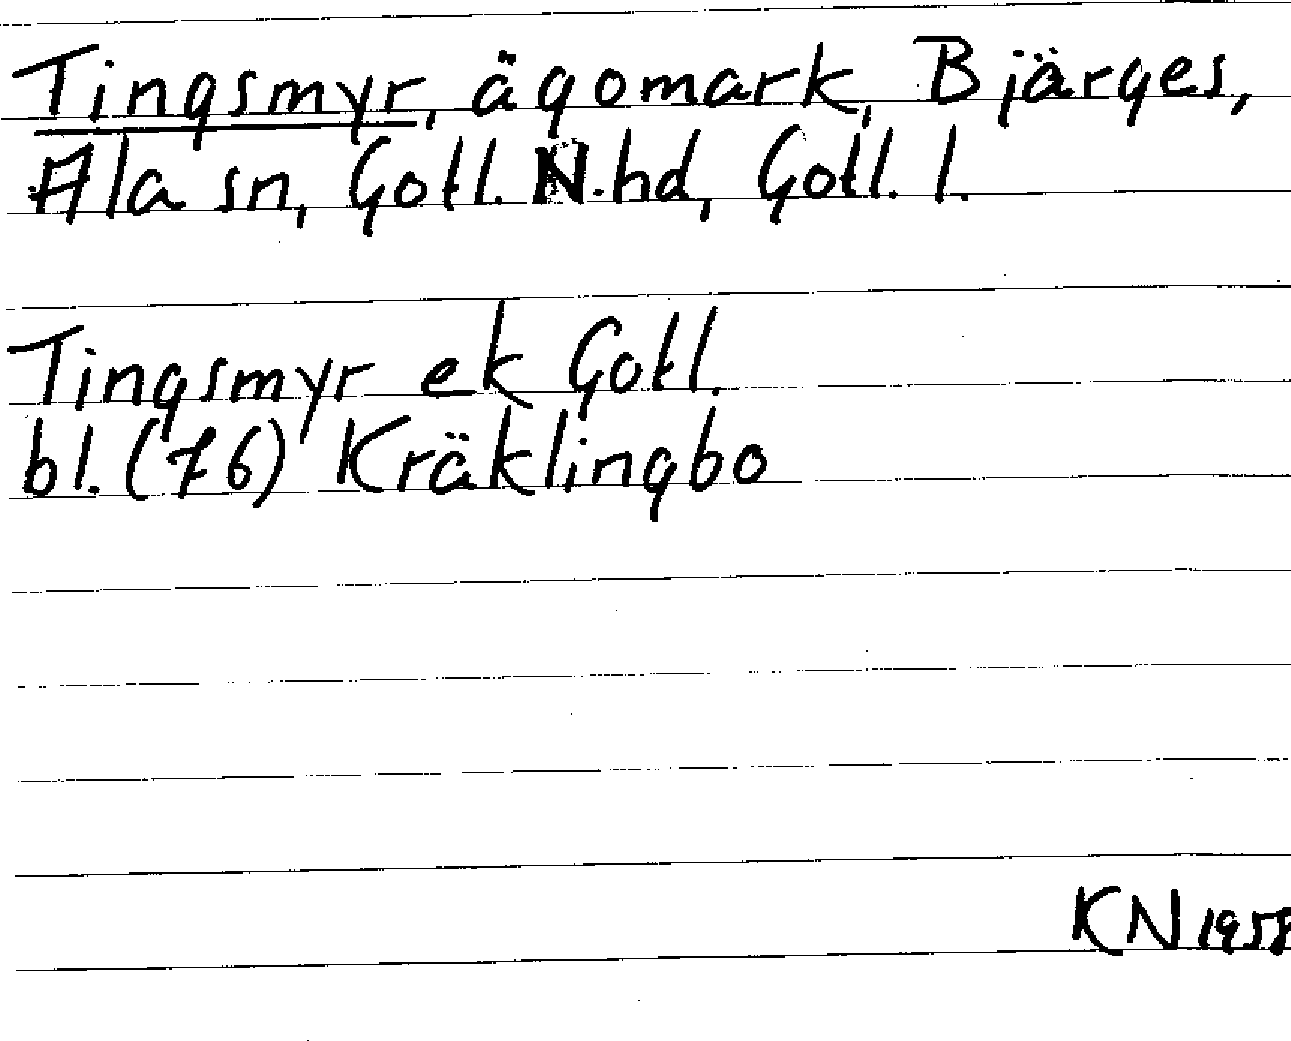 Tingsmyr, ägomark, Bjärges,
Ala sn, Gotl. N. hd, Gotl. l.
Tingsmyr ek Gotl.
bl. (76) Kräklingbo
KN 1958